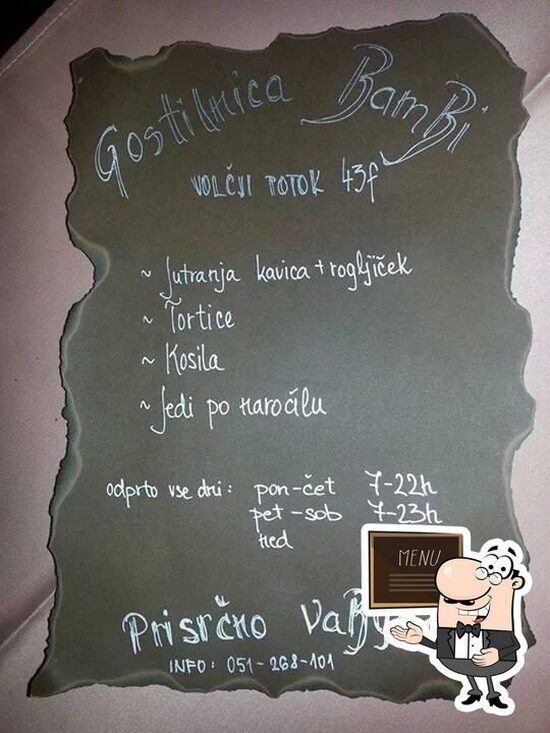 Gostilnica Bambi
VOLČJI POTOK 43f
~ Jutranja kavica + rogljiček
~ Tortice
~ Kosila
~ Jedi po naročilu
odprto vse dni: pon-čet 7-22h
pet-sob 7-23h
ned
MENU
Prisrčno
INFO: 051-268-101